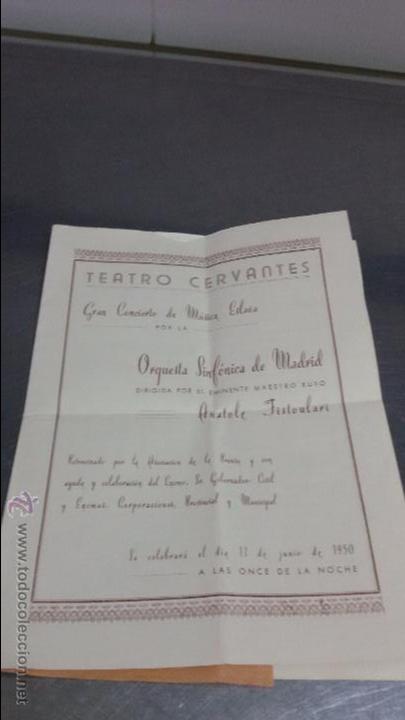 TEATRO CERVANTES
Gran Concierto de Música Eslava
POR LA
Orquesta Sinfónica de Madrid
DIRIGIDA POR EL EMINENTE MAESTRO RUSO
Anatole Fistoulari
Patrocinado por la Asociación de la Prensa y con
ayuda y colaboración del Excmo. Sr. Gobernador Civil
y Excmas. Corporaciones Provincial y Municipal
Se celebrará el día 11 de junio de 1950
A LAS ONCE DE LA NOCHE
© www.todocoleccion.net